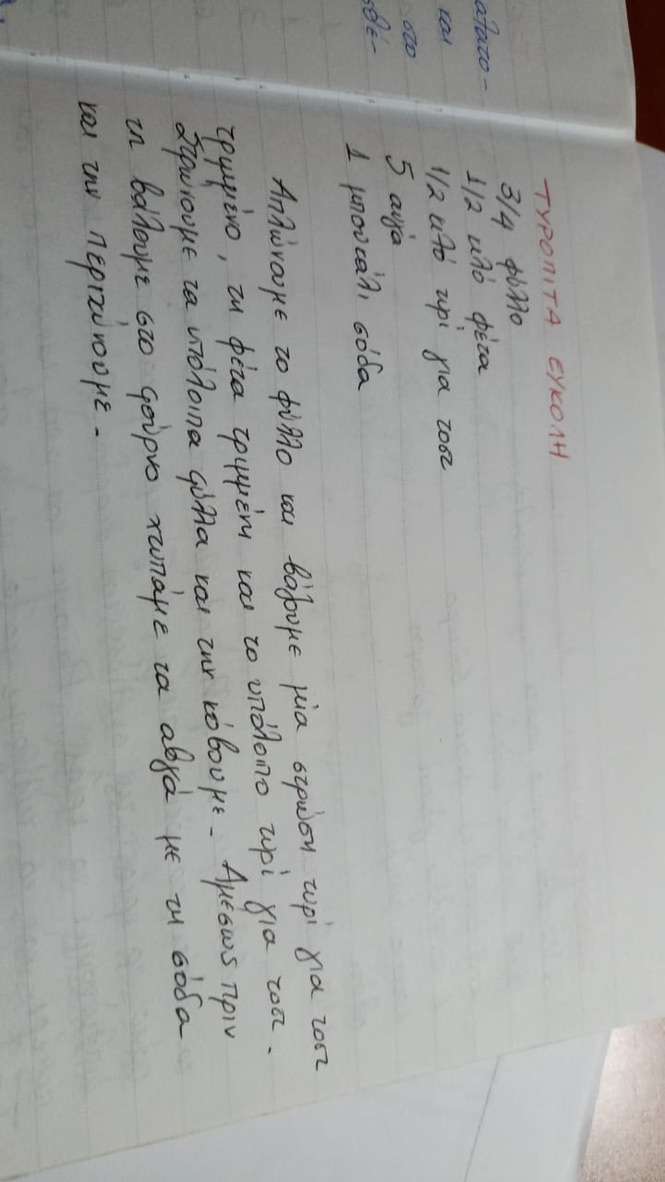 ατατο-
και
στο
θέ-
ΤΥΡΟΠΙΤΑ ΕΥΚΟΛΗ
3/4 φύλλο
1/2 κιλό φέτα
1/2 κιλό τυρί για τοστ
5 αυγά
1 μπουκάλι σόδα
Απλώνουμε το φύλλο και βάζουμε μία στρώση τυρί για τοστ
τριμμένο, τη φέτα τριμμένη και το υπόλοιπο τυρί για τοστ.
Στρώνουμε τα υπόλοιπα φύλλα και την κόβουμε. Αμέσως πριν
τη βάλουμε στο φούρνο χτυπάμε τα αβγά με τη σόδα
και την περιχύνουμε.